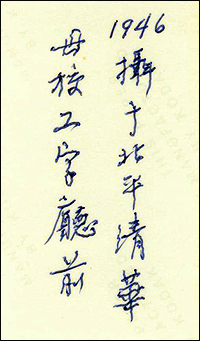 1946攝于北平清華
母校工字廳前